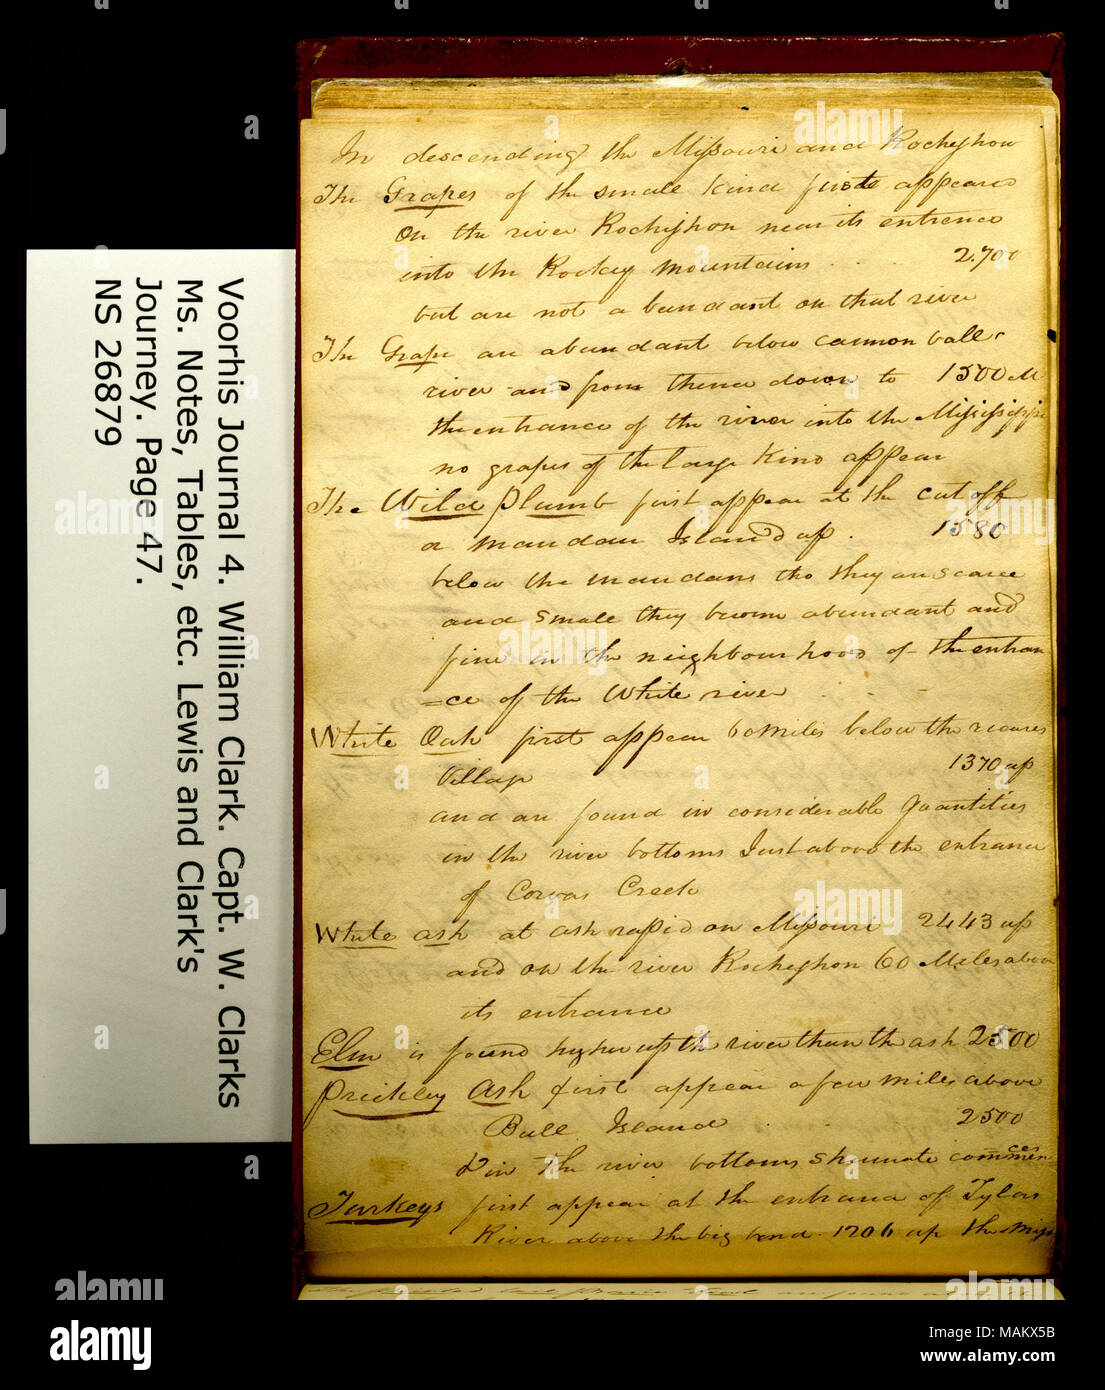 Voorhis Journal 4. William Clark. Capt. W. Clarks
Ms. Notes, Tables, etc. Lewis and Clark's
Journey. Page 47.
NS 26879
In descending the Missouri and Rochejhon
The Grapes of the small kind firste appears
On the river Rochejhon near its entrence
into the Rockey mountains . . . 2.700
but are not a bundant on that river
The Grape are abundant below cannon ball
river and from thence down to 1500 M
the entrance of the river into the Mississippi
no grapes of the large kind appear
The Wild Plumb first appear at the cut off
a mandan Island up . 1580
below the mandans tho they are scarce
and small they becom abundant and
fine in the neighbourhood of the entran
=ce of the White river . . .
White Oak first appear 60 miles below the ricares
Village 1370 up
and are found in considerable quantities
in the river bottoms Just above the entrance
of Corvas Creek
White ash at ash rapid on Missouri 2443 up
and on the river Rochejhon 60 Miles above
its entrance
Elm is found higher up the river than the ash 2500
Prickley Ash first appear a few miles above
Bull Island . . 2500
in the river bottoms commences
Turkeys first appear at the entrance of Tylors
River above the big bend. 1206 up the Misso
alamy
MAKX5B
www.alamy.com